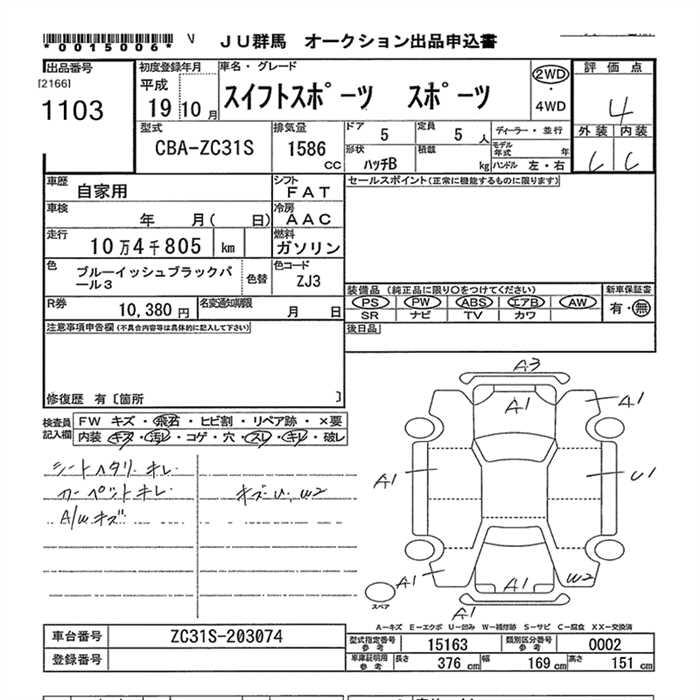 *0015006* V JU群馬 オークション出品申込書
出品番号
[2166]
1103
初度登録年月
平成
19 10 月
車名・グレード
スイフトスポーツ スポーツ
2WD
・
4WD
評価点
4
外装 内装
C C
型式
CBA-ZC31S
排気量
1586 CC
ドア 5
定員 5 人
ディーラー・並行
形状 ハッチB
積載 kg
モデル年式 年
ハンドル 左・右
車歴 自家用
シフト FAT
セールスポイント(正常に機能するものに限ります)
車検 年 月( 日)
冷房 AAC
走行 10万4千805 km
燃料 ガソリン
色 ブルーイッシュブラックパール3
色替
色コード ZJ3
装備品 (純正品に限り○をつけてください)
新車保証書
PS PW ABS エアB AW
有・無
SR ナビ TV カワ
R券 10,380 円
名変通知期限 月 日
後日品
注意事項申告欄(不具合内容等は具体的に記入して下さい)
修復歴 有〔箇所 〕
検査員記入欄
FW キズ・飛石・ヒビ割・リペア跡・×要
内装 キズ・汚レ・コゲ・穴・スレ・キレ・破レ
シートヘタリ キレ
カーペットキレ
A/wキズ
キズU, W2
A3
A1
A1
A1
U1
A1
A1
W2
A1
スペア
A-キズ E-エクボ U-凹み W-補修跡 S-サビ C-腐食 XX-交換済
車台番号 ZC31S-203074
登録番号
型式指定番号 参考 15163
類別区分番号 参考 0002
車庫証明用 参考 長さ 376 cm 幅 169 cm 高さ 151 cm